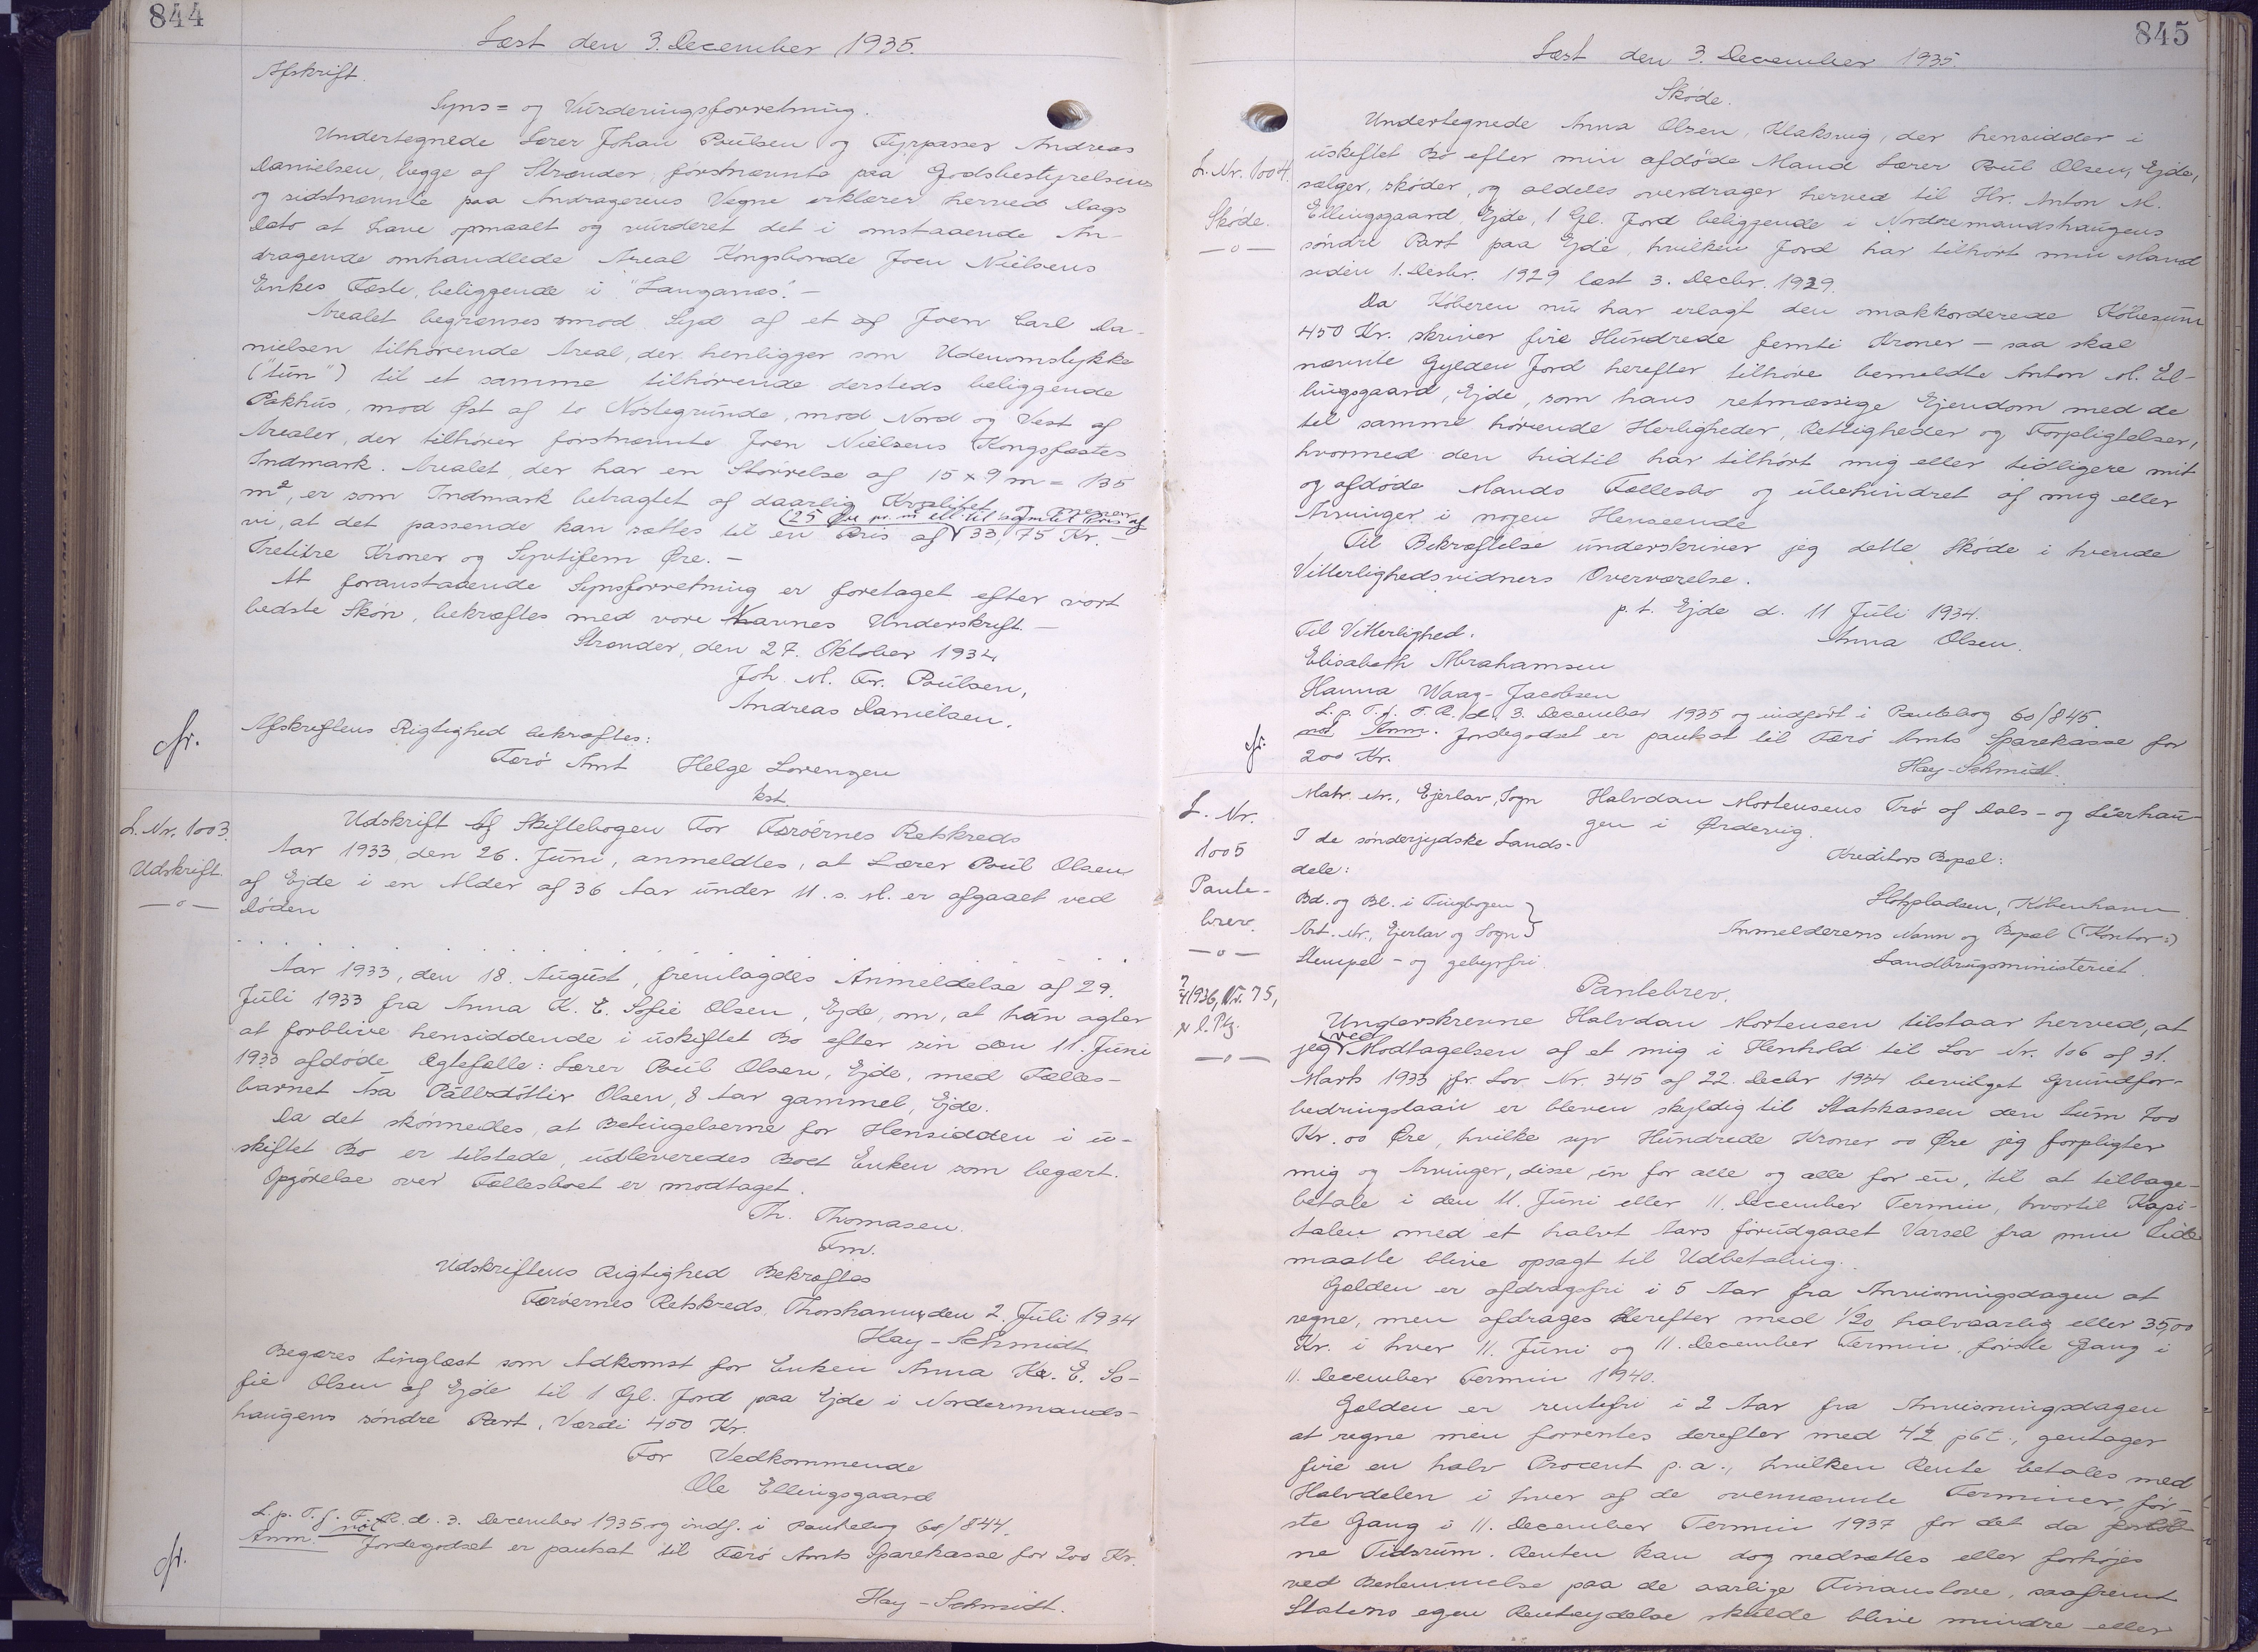 844
Læst den 3. December 1935.
Afskrift.
Syns= og Vurderingsforretning.
Undertegnede Lærer Johan Poulsen og Fyrpasser Andreas
Danielsen, begge af Strænder, førstnævnte paa Godsbestyrelsens
og sidstnævnte paa Andragerens Vegne erklærer herved Dags
Dato at have opmaalt og vurderet det i omstaaende An-
dragende omhandlede Areal Kongsbonde Joen Nielsens
Enkes Fæste, beliggende i "Langanæs". -
Arealet begrænses mod Syd af et af Joen Carl Da-
nielsen tilhørende Areal, der henligger som Udenomstykke
("tún") til et samme tilhørende dersteds beliggende
Pakhus, mod Øst af to Nøstegrunde, mod Nord og Vest af
Arealer, der tilhører førstnævnte Joen Nielsens Kongsfæstes
Indmark. Arealet, der har en Størrelse af 15 x 9 m = 135
m², er som Indmark betragtet af daarlig Kvalitet og mener
25 Øre pr. m² ell. til samlet Pris af
vi, at det passende kan sættes til en Pris af 33,75 Kr. -
Tretitre Kroner og Syvtifem Øre. -
At foranstaaende Synsforretning er foretaget efter vort
bedste Skøn, bekræftes med vore Navnes Underskrift. -
Strænder, den 27. Oktober 1934
Joh. M. Fr. Poulsen,
Andreas Danielsen.
cfr.
Afskriftens Rigtighed bekræftes:
Færø Amt Helge Lorenzen
kst.
L. Nr. 1003.
Udskrift.
—o—
Udskrift af Skiftebogen For Færøernes Retskreds
Aar 1933, den 26. Juni, anmeldtes, at Lærer Poul Olsen
af Ejde i en Alder af 36 Aar under 11. s. M. er afgaaet ved
Døden
. . . . . . . . . .
Aar 1933, den 18. August, fremlagdes Anmeldelse af 29.
Juli 1933 fra Anna K. E. Sofie Olsen, Ejde, om, at hun agter
at forblive hensiddende i uskiftet Bo efter sin den 11. Juni
1933 afdøde Ægtefælle: Lærer Poul Olsen, Ejde, med Fælles-
barnet Asa Pállsdóttir Olsen, 8 Aar gammel, Ejde.
Da det skønnedes, at Betingelserne for Hensidden i u-
skiftet Bo er tilstede, udleveredes Boet Enken som begært.
Opgørelse over Fællesboet er modtaget.
Th. Thomasen.
Fm.
Udskriftens Rigtighed Bekræftes
Færøernes Retskreds, Thorshavn, den 2. Juli 1934
Hay-Schmidt
Begæres tinglæst som Adkomst for Enken Anna K. E. So-
fie Olsen af Ejde til 1 Gl. Jord paa Ejde i Nordermands-
haugens søndre Part. Værdi 450 Kr.
For Vedkommende
Ole Ellingsgaard
L. p. T. f. F. R. d. 3. December 1935 og indf. i Pantebog 60/844.
not
Anm. Jordegodset er pantsat til Færø Amts Sparekasse for 200 Kr.
cfr.
Hay-Schmidt.
845
Læst den 3. December 1935.
Skøde.
L. Nr. 1004.
Skøde.
—o—
Undertegnede Anna Olsen, Klaksvig, der hensidder i
uskiftet Bo efter min afdøde Mand Lærer Poul Olsen, Ejde,
sælger, skøder, og aldeles overdrager herved til Hr. Anton M.
Ellingsgaard, Ejde, 1 Gl. Jord beliggende i Nordremandshaugens
søndre Part paa Ejde, hvilken Jord har tilhørt min Mand
siden 1. Decbr. 1929 læst 3. Decbr. 1929.
Da Køberen nu har erlagt den omakkorderede Købesum
450 Kr. skriver fire Hundrede femti Kroner - saa skal
nævnte Gylden Jord herefter tilhøre bemeldte Anton M. El-
lingsgaard, Ejde, som hans retmæssige Ejendom med de
til samme hørende Herligheder, Rettigheder og Forpligtelser,
hvormed den hidtil har tilhørt mig eller tidligere mit
og afdøde Mands Fællesbo og ubehindret af mig eller
Arvinger i nogen Henseende
Til Bekræftelse underskriver jeg dette Skøde i tvende
Vitterlighedsvidners Overværelse.
p. t. Ejde d. 11 Juli 1934.
Til Vitterlighed:
Anna Olsen.
Elisabeth Abrahamsen
Hanna Waag-Jacobsen
L. p. T. f. F. R. d. 3. December 1935 og indført i Pantebog 60/845.
not Anm. Jordegodset er pantsat til Færø Amts Sparekasse for
cfr.
200 Kr.
Hay-Schmidt.
L. Nr.
1005
Pante-
brev.
—o—
7/4 1936, Nr. 75,
—o—
Matr. Nr., Ejerlav, Sogn
Halvdan Mortensens Trø af Dals- og Lierhau-
gen i Ørdevig.
I de sønderjydske Lands-
dele:
Kreditors Bopæl:
Bd. og Bl. i Tingbogen
Slotspladsen, København.
Art. Nr., Ejerlav og Sogn
Anmelderens Navn og Bopæl (Kontor:)
Stempel- og gebyrfri.
Landbrugsministeriet.
Pantebrev.
Underskrevne Halvdan Mortensen tilstaar herved, at
ved
jeg Modtagelsen af et mig i Henhold til Lov Nr. 106 af 31.
Marts 1933 jfr. Lov Nr. 345 af 22. Decbr 1934 bevilget Grundfor-
bedringslaan er bleven skyldig til Statskassen den Sum 700
Kr. 00 Øre, hvilke syv Hundrede Kroner 00 Øre jeg forpligter
mig og Arvinger, disse en for alle og alle for en, til at tilbage-
betale i den 11. Juni eller 11. December Termin, hvortil Kapi-
talen med et halvt Aars forudgaaet Varsel fra min Side
maatte blive opsagt til Udbetaling.
Gælden er afdragsfri i 5 Aar fra Anvisningsdagen at
regne, men afdrages derefter med 1/20 halvaarlig eller 35,00
Kr. i hver 11. Juni og 11. December Termin, første Gang i
11. December Termin 1940.
Gælden er rentefri i 2 Aar fra Anvisningsdagen
at regne men forrentes derefter med 4½ pCt., gentager
fire en halv Procent p.a., hvilken Rente betales med
Halvdelen i hver af de ovennævnte Terminer, før-
ste Gang i 11. December Termin 1937 for det da forløb-
ne Tidsrum. Renten kan dog nedsættes eller forhøjes
ved Bestemmelse paa de aarlige Finanslove, saafremt
Statens egen Renteydelse skulde blive mindre eller